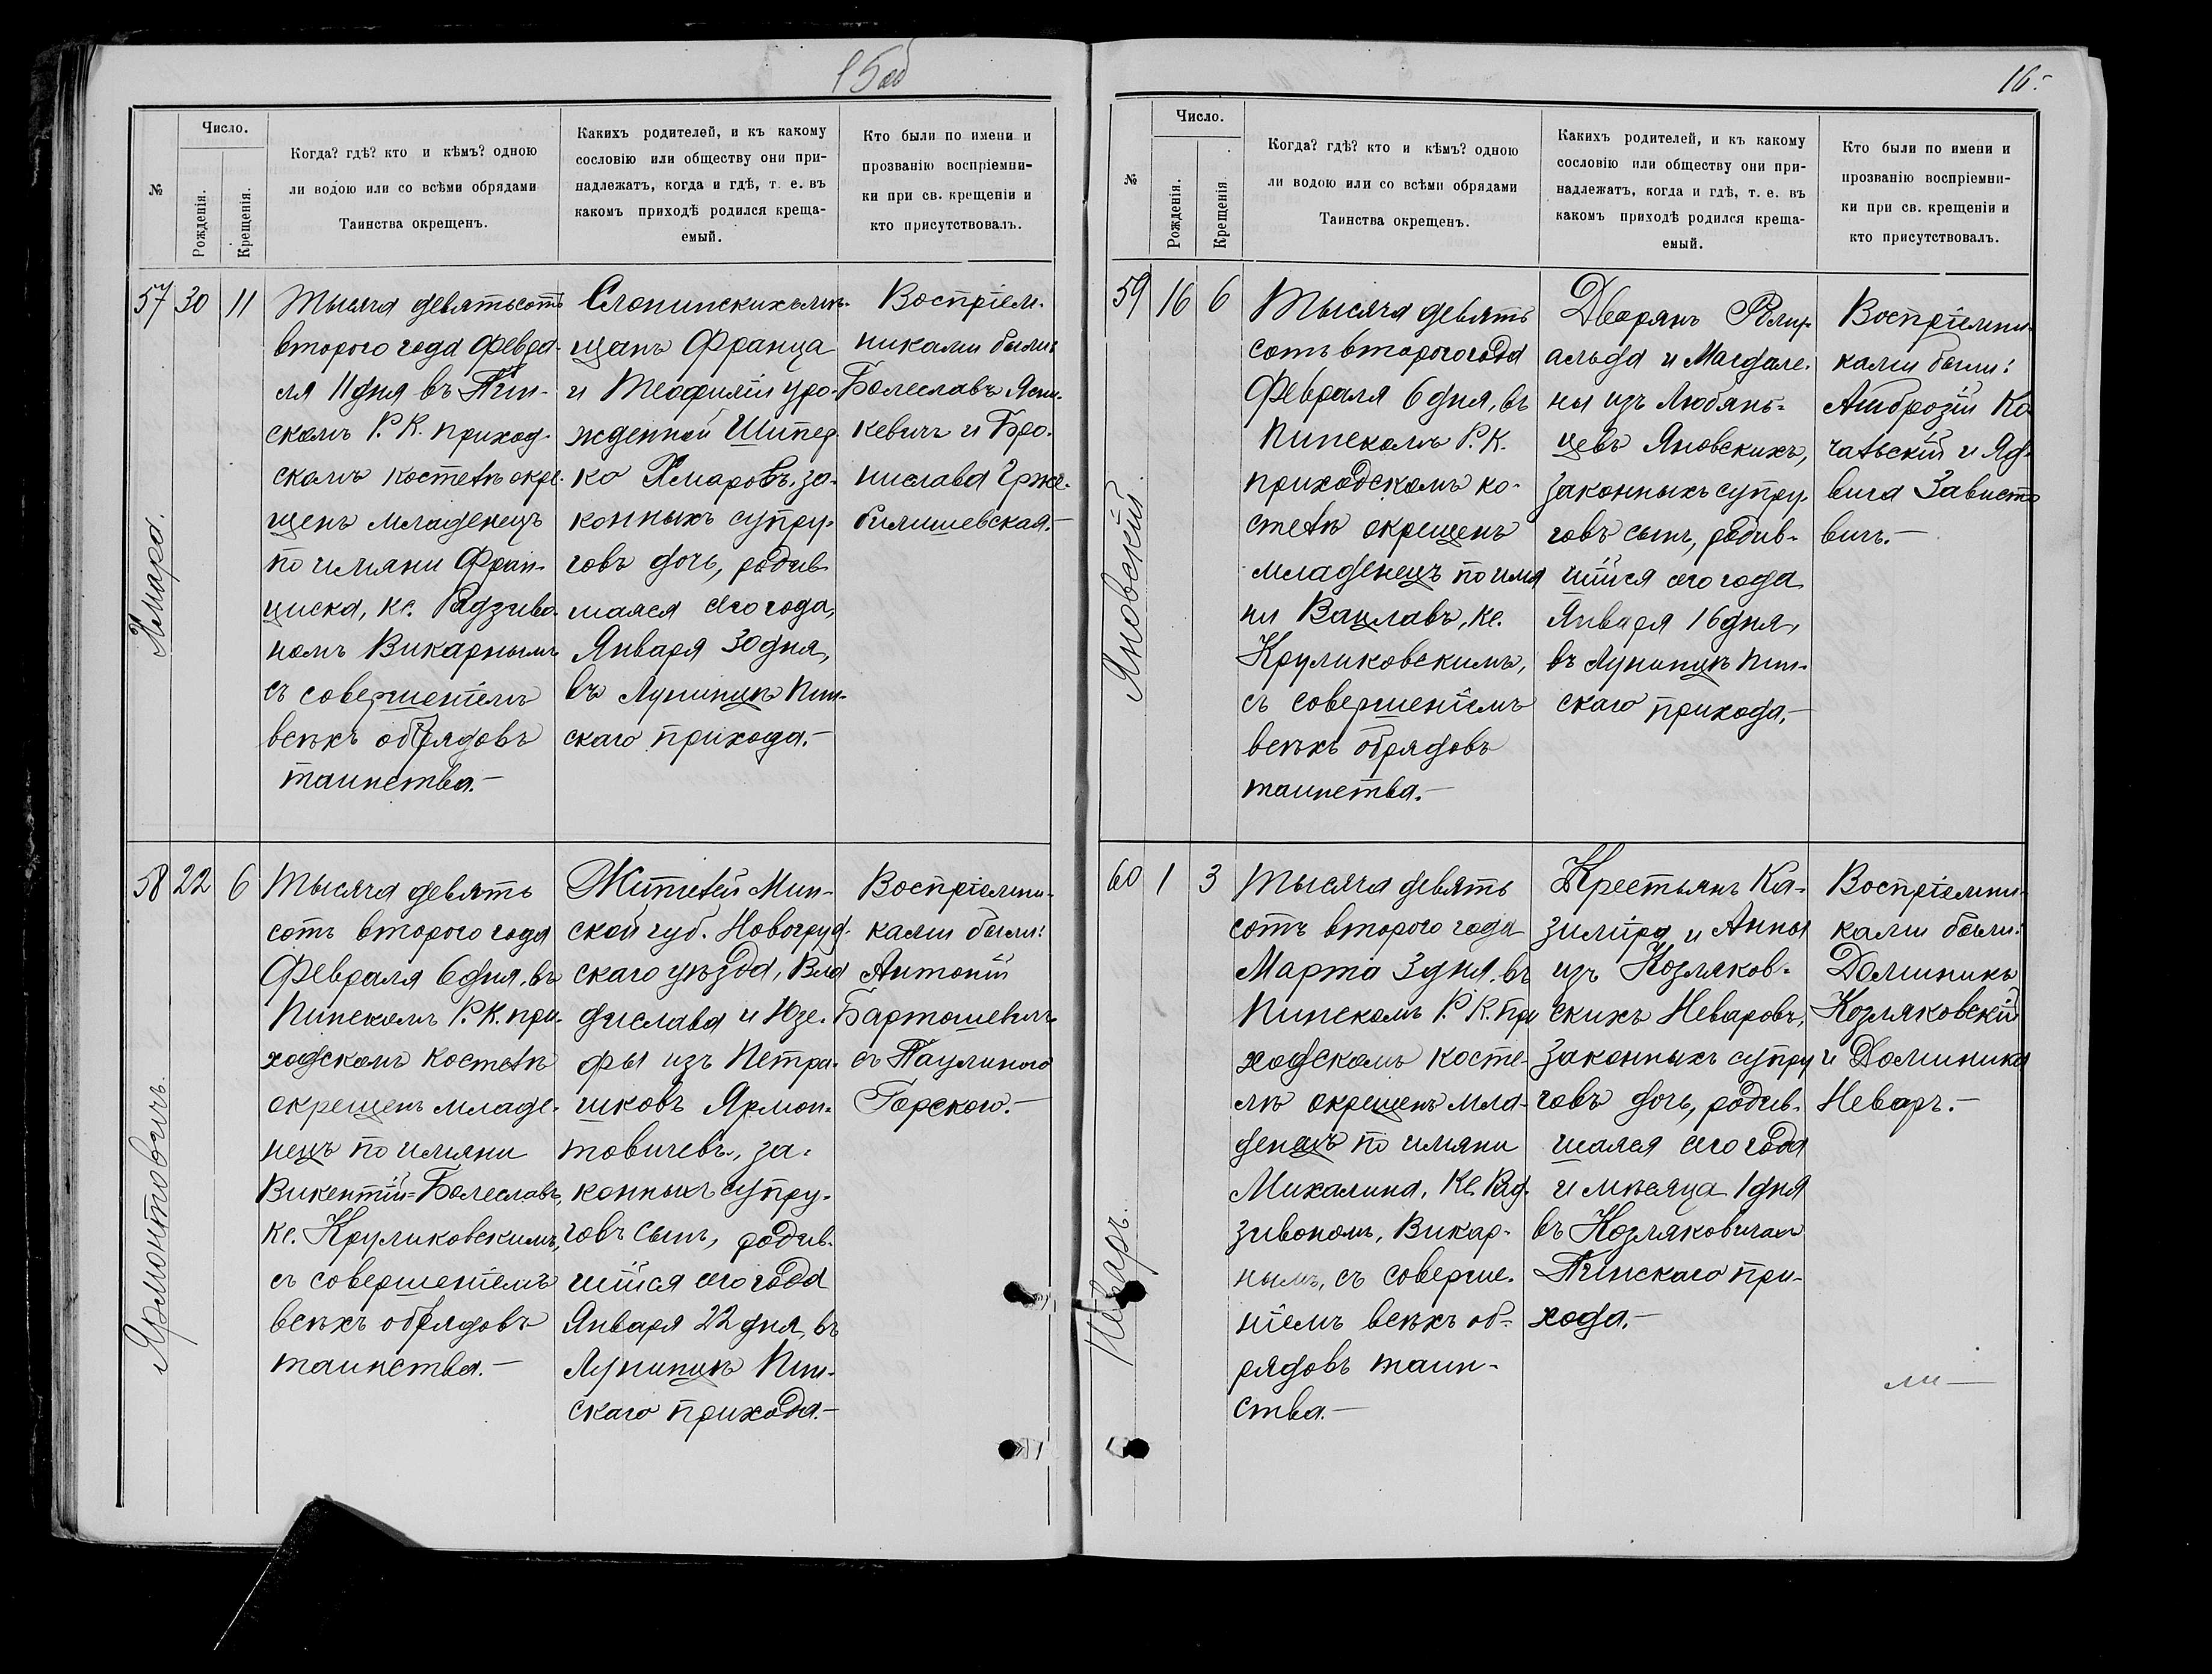 15об
№
Число.
Рожденія.
Крещенія.
Когда? гдѣ? кто и кѣмъ? одною
ли водою или со всѣми обрядами
Таинства окрещенъ.
Какихъ родителей, и къ какому
сословію или обществу они при-
надлежатъ, когда и гдѣ, т. е. въ
какомъ приходѣ родился креща-
емый.
Кто были по имени и
прозванію воспріемни-
ки при св. крещеніи и
кто присутствовалъ.
57
30
11
Хмара.
Тысяча девятьсотъ
второго года Февра-
ля 11 дня въ Пин-
скомъ Р. К. приход-
скомъ костелѣ окре-
щенъ младенецъ
по имяни Фран-
циска, кс. Радзиво-
номъ Викарнымъ
съ совершеніемъ
всѣхъ обрядовъ
таинства.—
Слонимскихъ мѣ-
щанъ Франца
и Теофиліи уро-
жденной Шипер-
ко Хмаровъ, за-
конныхъ супру-
говъ дочь, родив-
шаяся сего года,
Января 30 дня,
въ Лунинцѣ Пин-
скаго прихода.—
Воспріем-
никами были:
Болеславъ Ясин-
кевичъ и Бро-
нислава Грже-
билишевская.—
58
22
6
Ярмонтовичъ.
Тысяча девять
сотъ второго года
Февраля 6 дня, въ
Пинскомъ Р. К. при-
ходскомъ костелѣ
окрещенъ младе-
нецъ по имяни
Викентій-Болеславъ,
кс. Круликовскимъ,
съ совершеніемъ
всѣхъ обрядовъ
таинства.—
Жителей Мин-
ской губ. Новогруд-
скаго уѣзда, Вла
дислава и Юзе-
фы изъ Петра-
шковъ Ярмон-
товичевъ, за-
конныхъ супру-
говъ сынъ, родив-
шійся сего года
Января 22 дня, въ
Лунинцѣ Пин-
скаго прихода.—
Воспріемни-
ками были:
Антоній
Бартошевичъ
съ Паулиною
Горскою.—
16.
№
Число.
Рожденія.
Крещенія
Когда? гдѣ? кто и кѣмъ? одною
ли водою или со всѣми обрядами
Таинства окрещенъ.
Какихъ родителей, и къ какому
сословію или обществу они при-
надлежатъ, когда и гдѣ, т. е. въ
какомъ приходѣ родился креща-
емый.
Кто были по имени и
прозванію воспріемни-
ки при св. крещеніи и
кто присутствовалъ.
59
16
6
Яновскій.
Тысяча девять
сотъ второго года
Февраля 6 дня, въ
Пинскомъ Р. К.
приходскомъ ко-
стелѣ окрещенъ
младенецъ по имя
ни Вацлавъ, кс.
Круликовскимъ,
съ совершеніемъ
всѣхъ обрядовъ
таинства.—
Дворянъ Рому-
альда и Магдале-
ны изъ Любань-
цевъ Яновскихъ,
законныхъ супру-
говъ сынъ, родив-
шійся сего года
Января 16 дня,
въ Лунинцѣ Пин-
скаго прихода.—
Воспріемни-
ками были:
Амброзій Ко
чальскій и Яд-
вига Зависто
вичъ.—
60
1
3
Неваръ.
Тысяча девять
сотъ второго года
Марта 3 дня, въ
Пинскомъ Р. К. при
ходскомъ косте-
лѣ окрещенъ мла-
денецъ по имяни
Михалина, кс. Рад-
зивономъ, Викар-
нымъ, съ соверше-
ніемъ всѣхъ об-
рядовъ таин-
ства.—
Крестьянъ Ка-
зиміра и Анны
изъ Козляков-
скихъ Неваровъ,
законныхъ супру
говъ дочь, родив-
шаяся сего года
и мѣсяца 1 дня
въ Козляковичахъ
Пинскаго при-
хода.—
Воспріемни-
ками были:
Доминикъ
Козляковскій
и Доминика
Неваръ.—